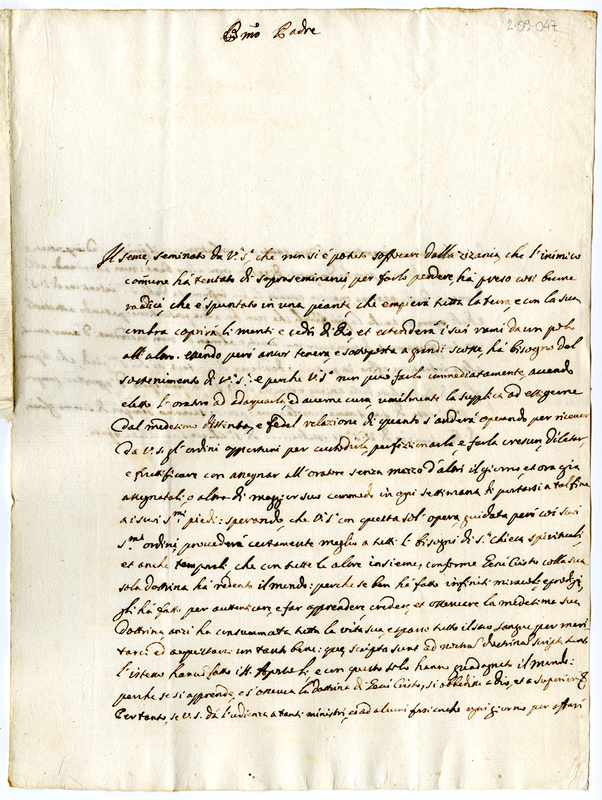 Bmo Padre
2-59-047
Il seme, seminato da V. S. che non si è potuto soffocare dalla zizania, che l'inimico
comune hà tentato di soprasseminarvi per farlo perdere, hà preso così buone
radici, che è spuntato in una pianta, che empierà tutta la terra, e con la sua
ombra coprirà li monti, e cedri di Dio, et estenderà i suoi rami da un polo
all'altro. essendo però ancor tenera, e sottoposta a grandi scosse, hà bisogno del
sostenimento di V. S.: e perche V. S. non può farlo immediatamente, avendo
eletto l'oratore ad adaquarla, ed averne cura, umilmente la supplica ad esiggerne
dal medesimo distinta, e fedel relazione di quanto s'anderà operando per ricever
da V. S. gl'ordini opportuni per custodirla, perfezionarla, e farla crescere, dilatar,
e fruttificare con assegnar all'oratore senza mezzo d'altri il giorno, et ora già
assegnatali, o altra di maggior suo commodo in ogni settimana di portarsi a tal fine
a i suoi smi piedi: sperando, che V. S. con questa sol' opera, guidata però coi suoi
smi ordini, provederà certamente meglio a tutti li bisogni di S. Chiesa spirituali,
et anche temporali, che con tutte le altre insieme, conforme Gesù Cristo colla sua
sola dottrina hà redento il mondo: perche se ben hà fatto infiniti miracoli, e prodigi,
gli hà fatti per autenticare, e far apprendere, credere, et osservare la medesima sua
dottrina, anzi hà consummata tutta la vita sua, e sparso tutto il suo sangue per meri
tarci, ed acquistarci un tanto bene: quae scripta sunt ad nostram doctrinam scripta sunt
l'istesso hanno fatto i SS. Apostoli, e con questo solo hanno guadagnato il mondo:
perche se si apprende, e s'osserva la dottrina di Gesù Cristo, si obbedisce a Dio, et a superiori
Per tanto, se V. S. dà l'udienza a tanti ministri, ed ad alcuni forsi anche ogni giorno per affari